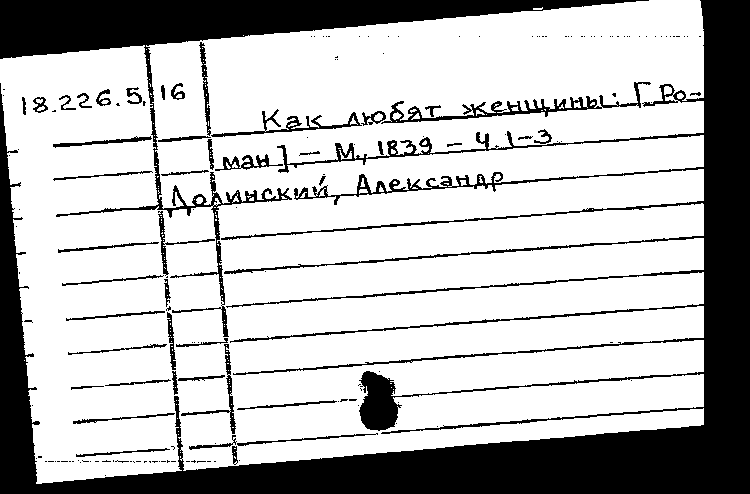 18.226.5.16
Как любят женщины: [Ро-
ман]. – М., 1839 – Ч. 1-3
Долинский, Александр